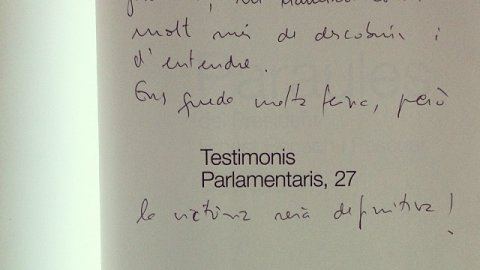 molt més de descobrir i
d'entendre.
Ens queda molta feina, però
Testimonis
Parlamentaris, 27
la victòria serà definitiva!